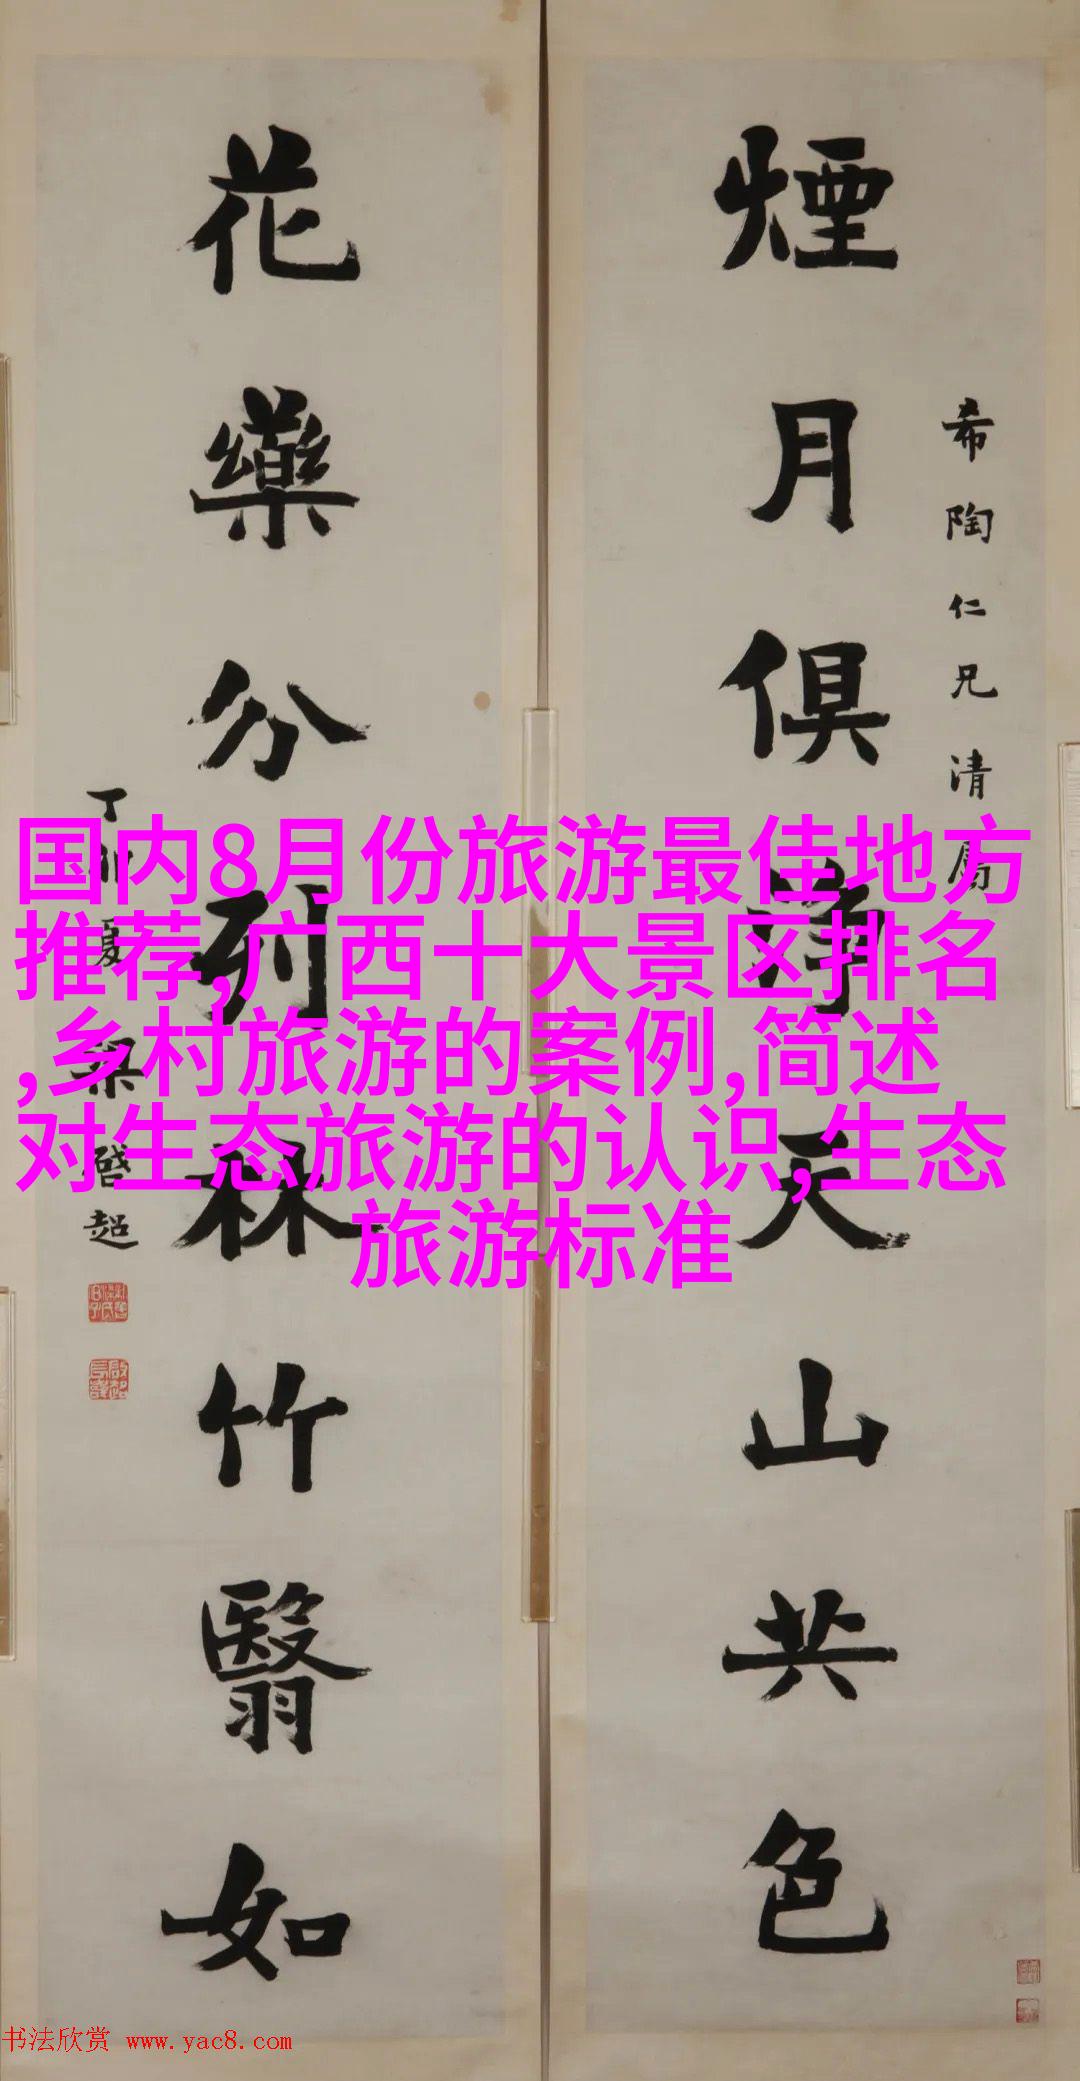 希陶仁兄清属
煙月俱天山共色
花藥分列林竹翳如
丁卯夏梁啓超
国内8月份旅游最佳地方
推荐,广西十大景区排名
,乡村旅游的案例,简述
对生态旅游的认识,生态
旅游标准
书法欣赏 www.yac8.com